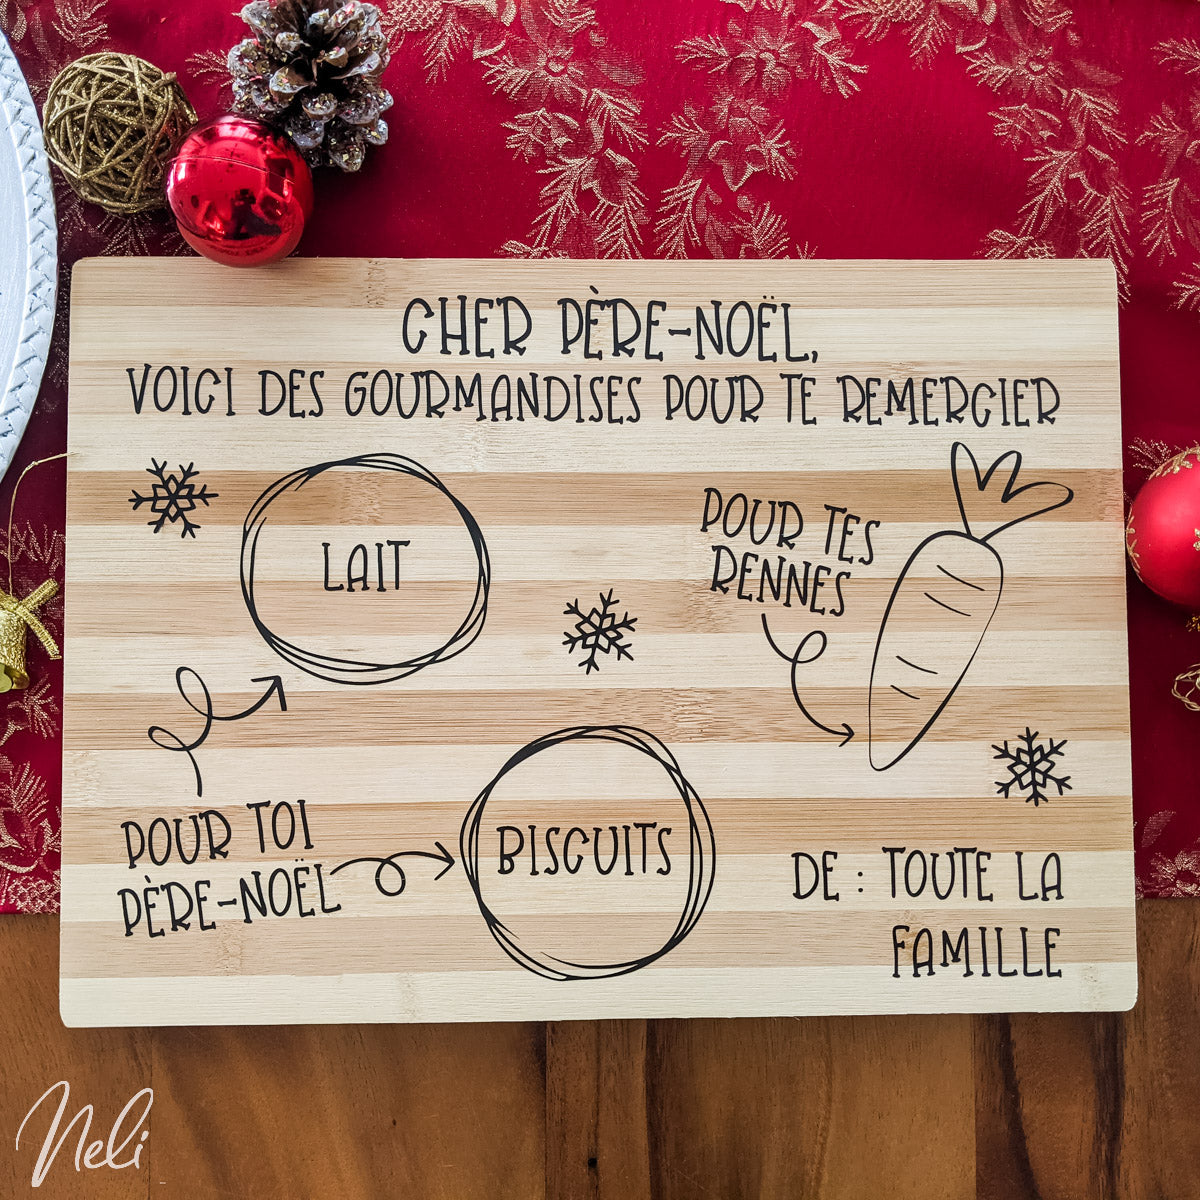 CHER PÈRE-NOËL,
VOICI DES GOURMANDISES POUR TE REMERCIER
LAIT
POUR TES
RENNES
POUR TOI
PÈRE-NOËL
BISCUITS
DE : TOUTE LA
FAMILLE
Neli